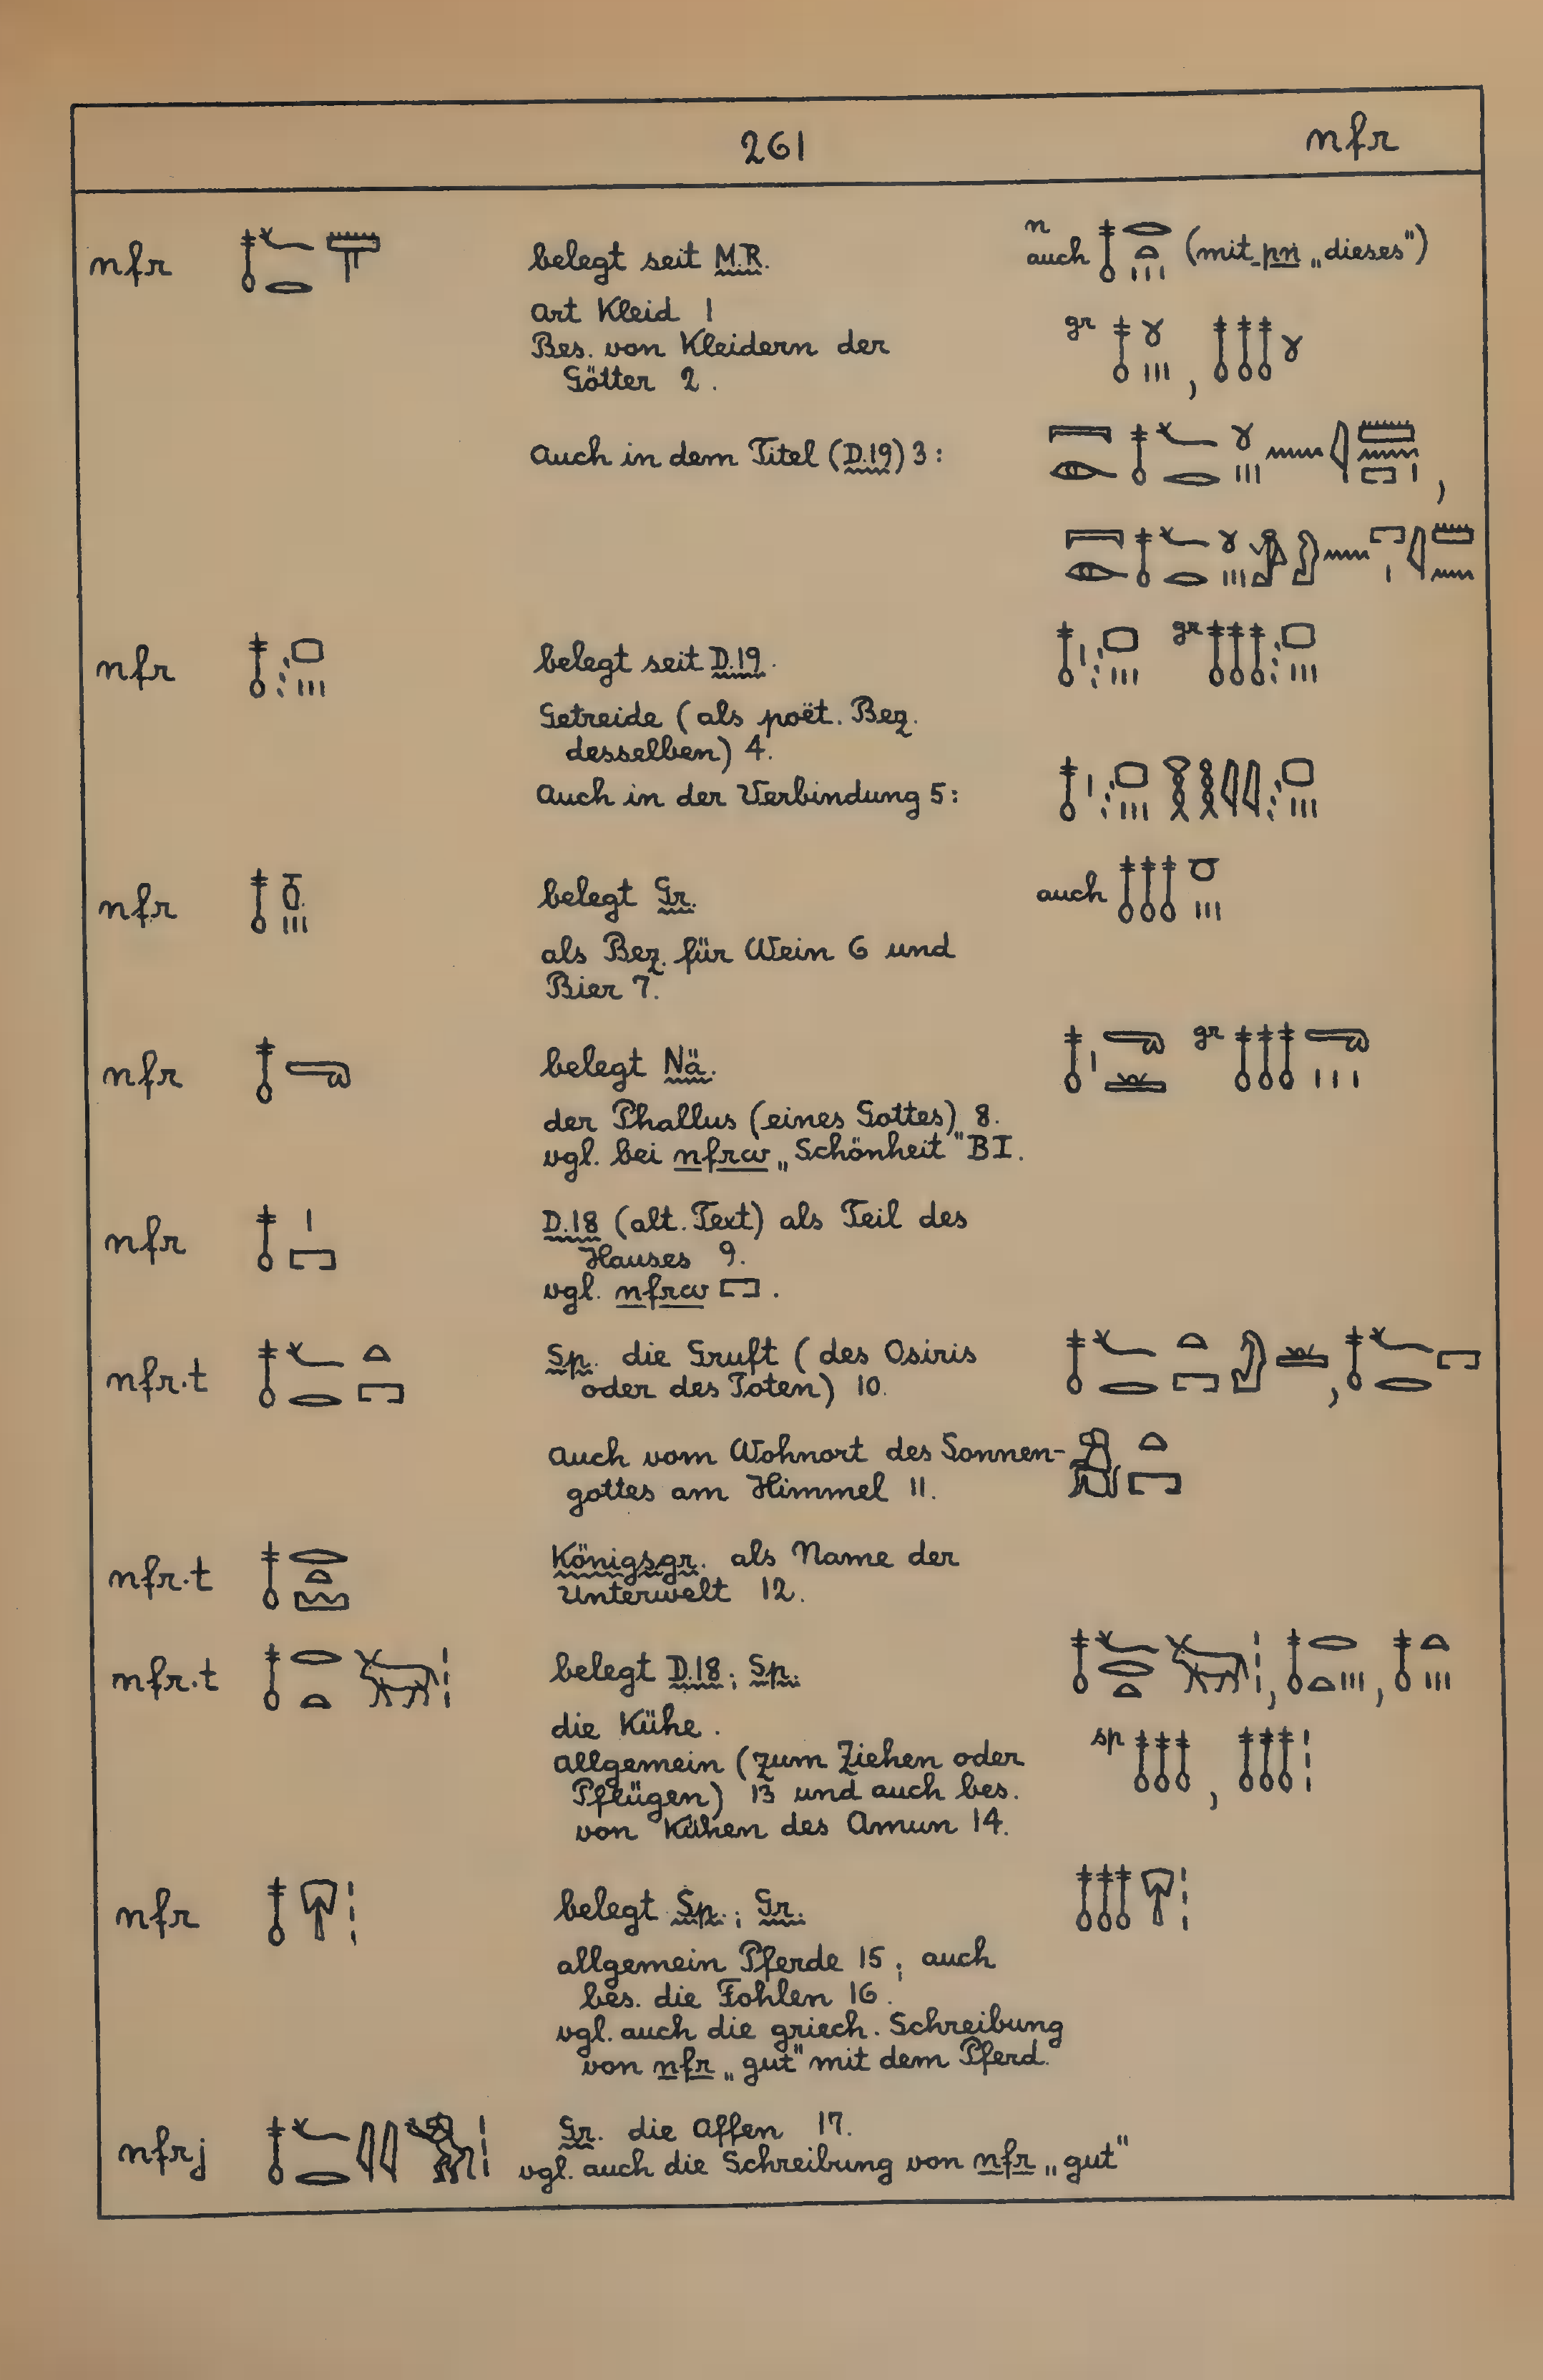 261 nfr
nfr 𓄤𓆑𓂋 belegt seit M.R. n auch 𓄤𓂋𓏏𓏥 (mit pn „dieses")
Art Kleid 1
Bes. von Kleidern der gr 𓄤𓍱𓏥, 𓄤𓄤𓄤𓍱
Götter 2.
Auch in dem Titel (D.19) 3:
nfr belegt seit D.19. gr
Getreide (als poët. Bez.
desselben) 4.
Auch in der Verbindung 5:
nfr belegt Gr. auch
als Bez. für Wein 6 und
Bier 7.
nfr belegt Nä. gr
der Phallus (eines Gottes) 8.
vgl. bei nfrw „Schönheit" B I.
nfr 𓄤𓏤𓉐 D.18 (alt. Text) als Teil des
Hauses 9.
vgl. nfrw 𓉐.
nfr.t 𓄤𓆑𓂋𓏏𓉐 Sp. die Gruft (des Osiris
oder des Toten) 10.
Auch vom Wohnort des Sonnen-
gottes am Himmel 11.
nfr.t 𓄤𓂋𓏏𓈉 Königsgr. als Name der
Unterwelt 12.
nfr.t belegt D.18; Sp.
die Kühe.
Allgemein (zum Ziehen oder sp 𓄤𓄤𓄤, 𓄤𓄤𓄤𓏪
Pflügen) 13 und auch bes.
von Kühen des Amun 14.
nfr belegt Sp.; Gr.
allgemein Pferde 15; auch
bes. die Fohlen 16.
vgl. auch die griech. Schreibung
von nfr „gut" mit dem Pferd.
nfrj Gr. die Affen 17.
vgl. auch die Schreibung von nfr „gut"